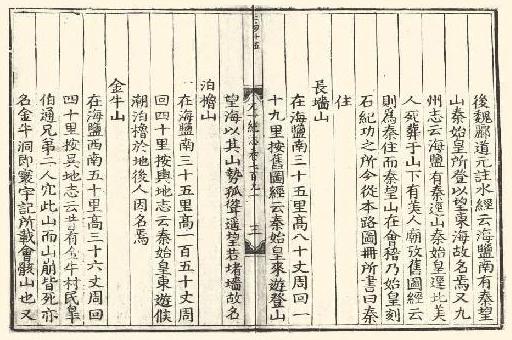 後魏酈道元註水經云海鹽南有秦望
山秦始皇所登以望東海故名焉又九
州志云海鹽有秦逕山秦始皇逕此美
人死葬于山下有美人廟攷舊圖經云
則為秦住而秦望山在會稽乃始皇刻
石紀功之所今從本路圖冊所書曰秦
住
長墻山
在海鹽南三十五里高八十丈周回一
十九里按舊圖經云秦始皇來遊登山
三
望海以其山勢孤聳遥望若堵墻故名
泊櫓山
在海鹽南三十五里高一百五十丈周
回四十里按輿地志云秦始皇東遊候
潮泊櫓於地後人因名焉
金牛山
在海鹽西南五十里高三十六丈周回
四十里按吳地志云昔有金牛村民皐
伯通兄弟二人穴此山而山崩皆死亦
名金牛洞即寰宇記所載會骸山也又